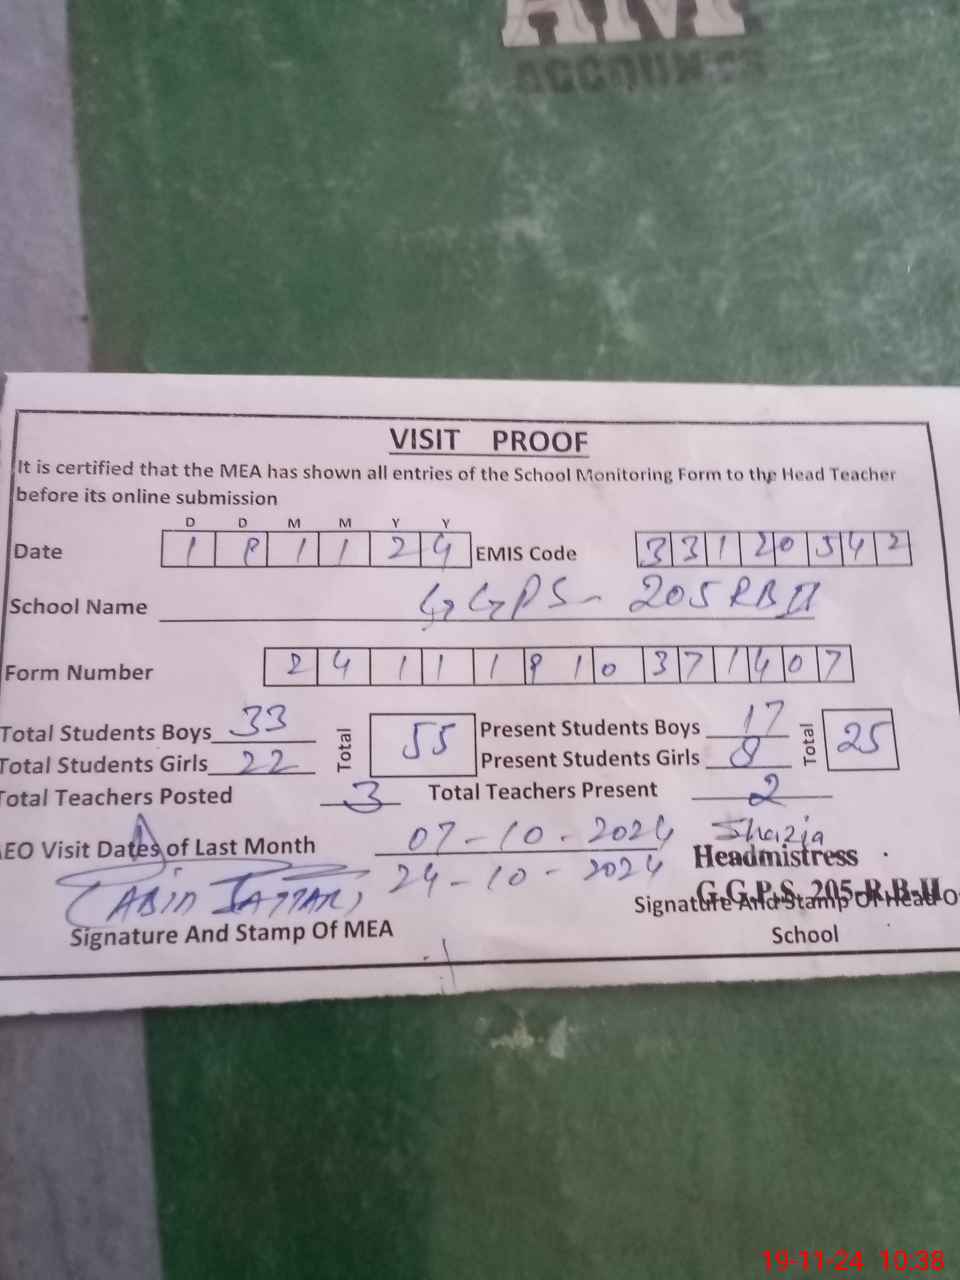 AM
ACCOUNTS
VISIT PROOF
It is certified that the MEA has shown all entries of the School Monitoring Form to the Head Teacher
before its online submission
D D M M Y Y
Date 1 8 1 1 2 4 EMIS Code 3 3 1 2 0 5 4 2
School Name GGPS- 205 RB II
Form Number 2 4 1 1 1 8 1 0 3 7 1 4 0 7
Total Students Boys 33 Total 55 Present Students Boys 17 Total 25
Total Students Girls 22 Present Students Girls 8
Total Teachers Posted 3 Total Teachers Present 2
AEO Visit Dates of Last Month 07-10-2024 Shazia
24-10-2024 Headmistress
G.G.P.S. 205-R.B-II
Signature And Stamp Of MEA Signature And Stamp Of Head O
School
19-11-24 10:38